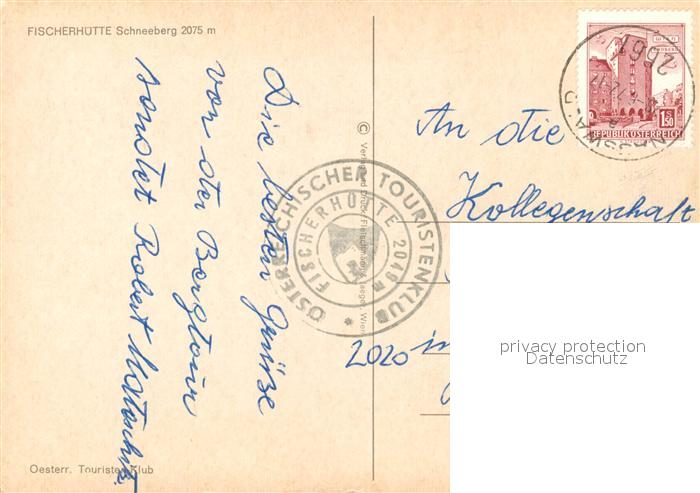 FISCHERHÜTTE Schneeberg 2075 m
Die besten Grüße
von der Bergtour
sendet Robert
Oesterr. Touristen Klub
© Verlag und Druck:
Wien
ÖSTERREICHISCHER TOURISTENKLUB
FISCHERHÜTTE 2049m
2661
REPUBLIK ÖSTERREICH
1.50
An die
Kollegenschaft
2020 in
privacy protection
Datenschutz